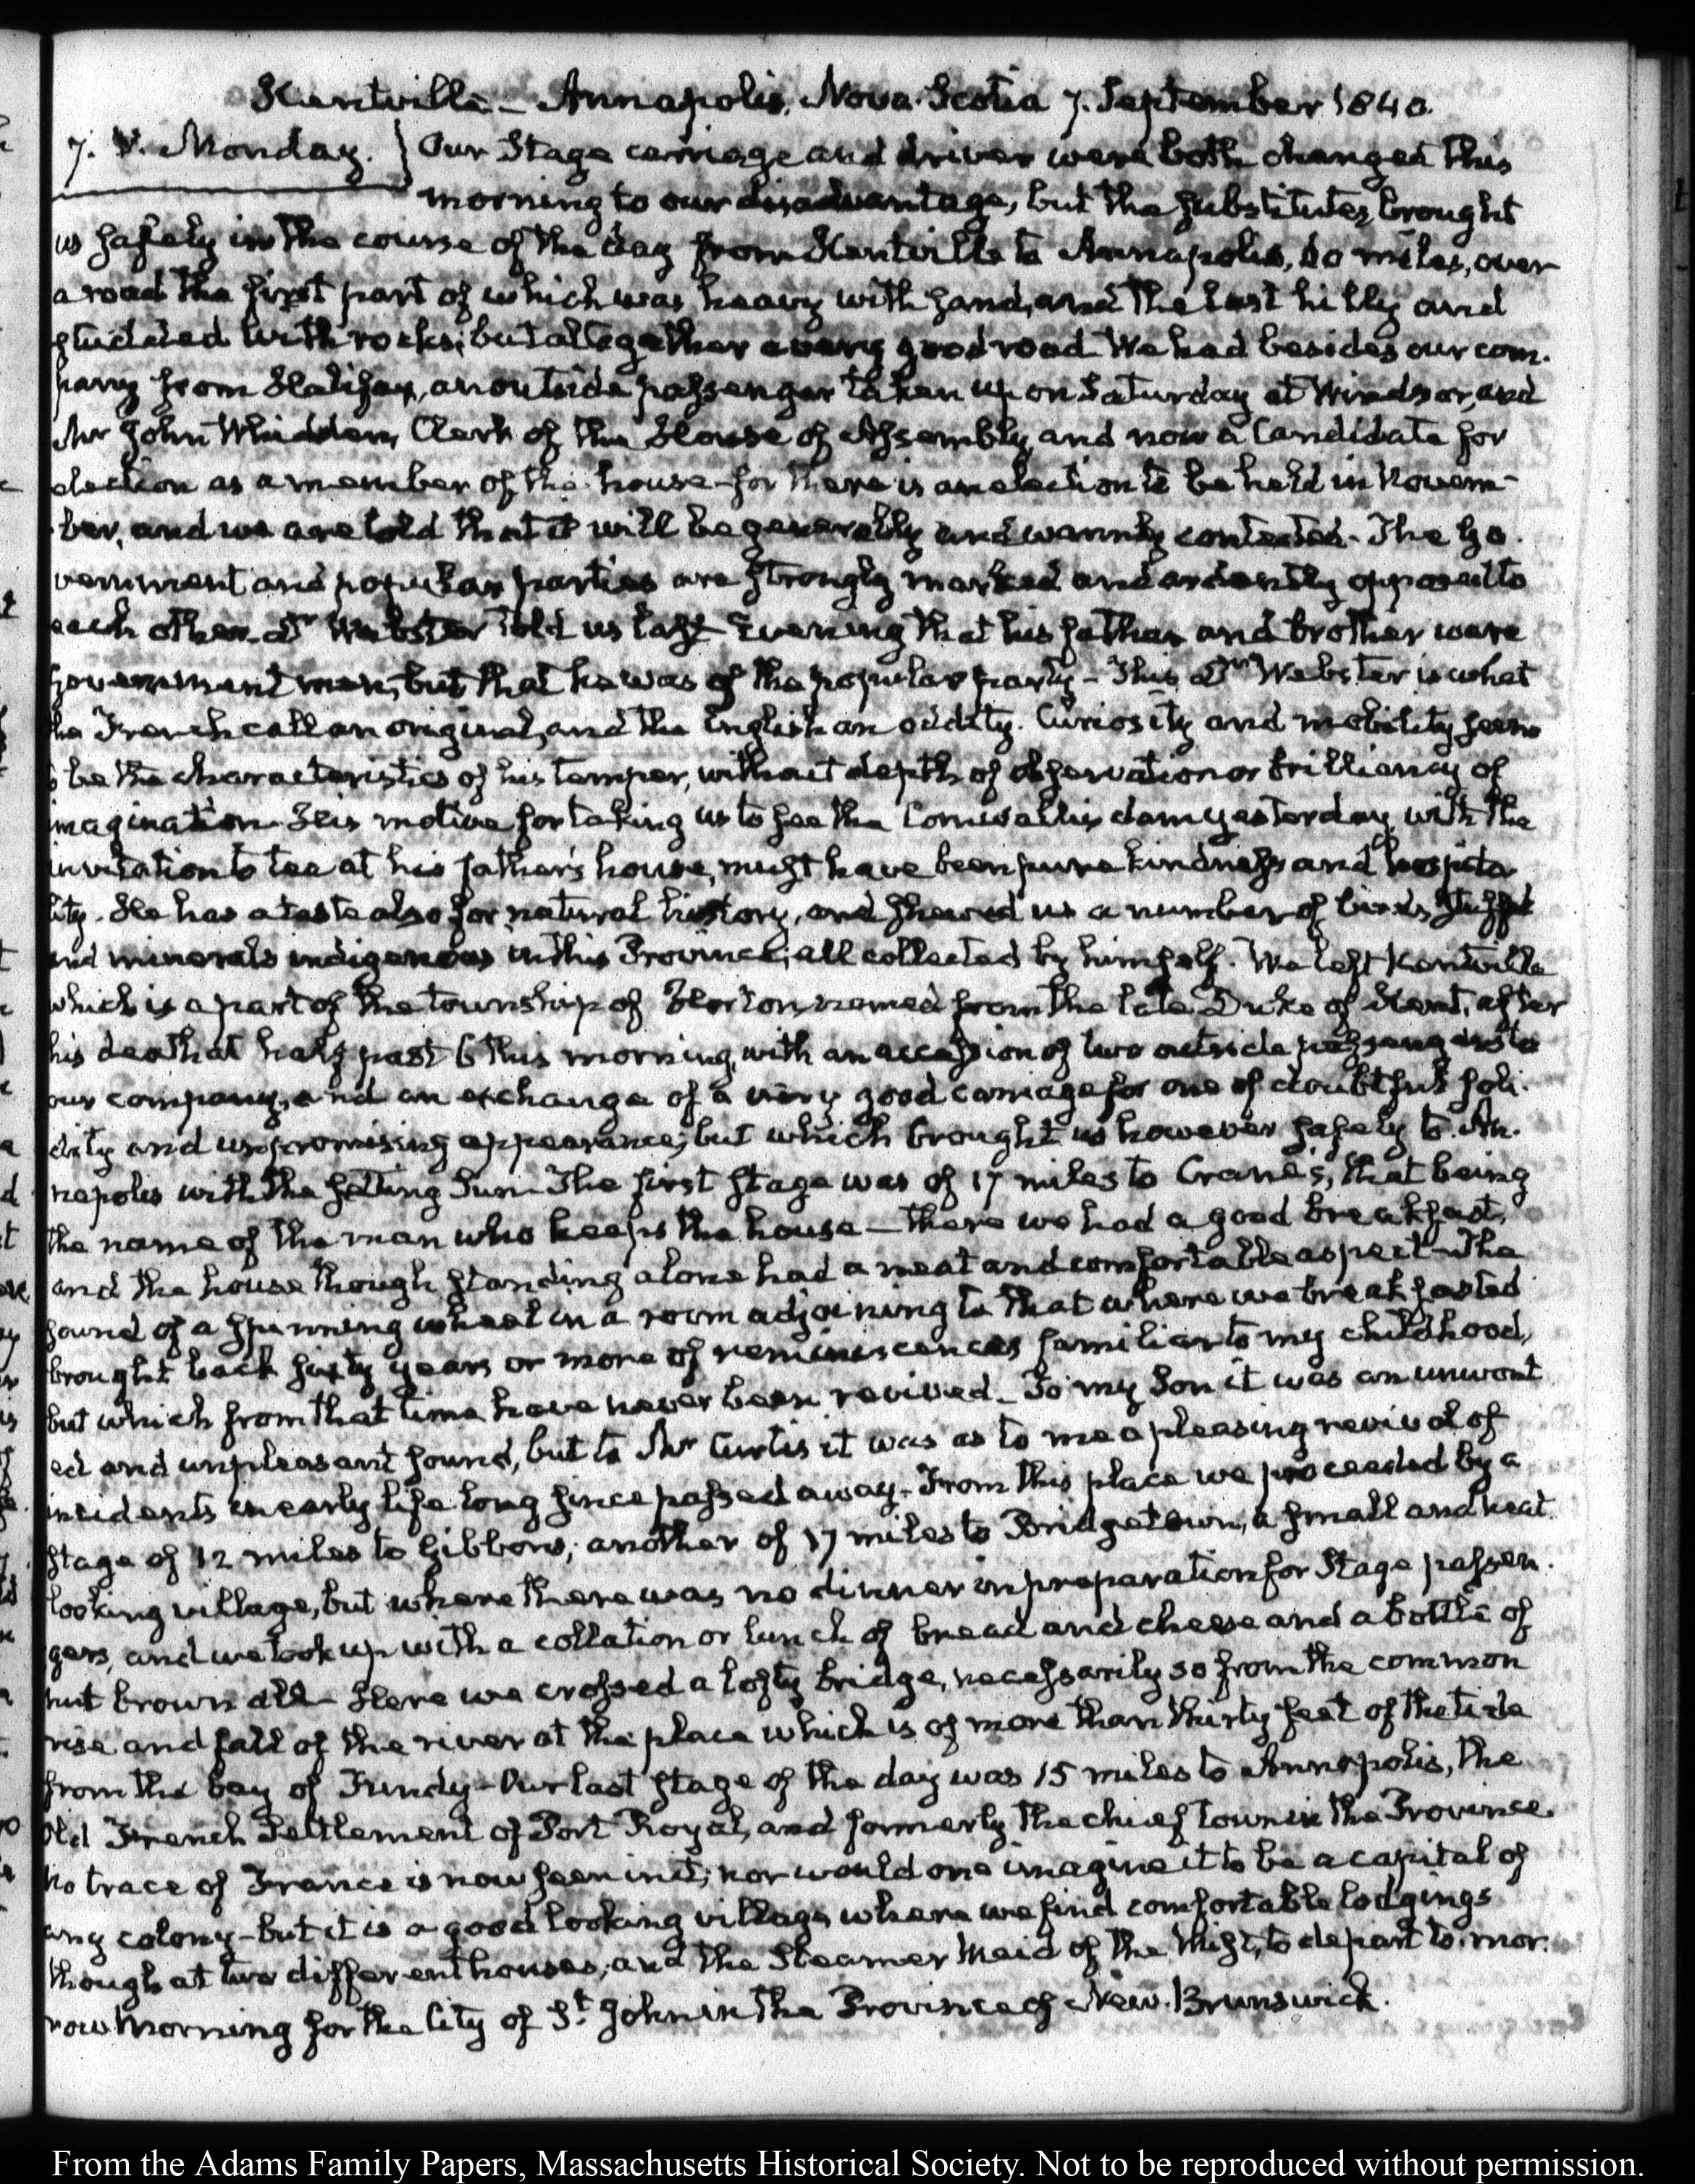 Kentville – Annapolis, Nova Scotia 7. September 1840.
7. V. Monday. } Our Stage carriage and driver were both changed this
morning to our disadvantage, but the substitutes, brought
us safely in the course of the day from Kentville to Annapolis, 60 miles, over
a road the first part of which was heavy with sand, and the last hilly and
studded with rocks; but altogether a very good road. We had besides our com-
pany from Halifax, an outside passenger taken up on Saturday at Windsor, and
Mr John Whidden, Clerk of the House of Assembly, and now a Candidate for
election as a member of the house – for there is an election to be held in Novem-
ber, and we are told that it will be generally and warmly contested – The Go-
vernment and popular parties are strongly marked and ardently opposed to
each other – Dr Webster told us last Evening that his father and brother were
Government men, but that he was of the popular party – This Dr Webster is what
the French call an original, and the English an oddity. Curiosity and mobility seem
to be the characteristics of his temper, without depth of observation or brilliancy of
imagination – His motive for taking us to see the Cornwallis dam yesterday, with the
invitation to tea at his father's house, must have been pure kindness and hospita-
lity. He has a taste also for natural history, and shewed us a number of birds, stuff'd
and minerals indigenous in this Province; all collected by himself. We left Kentville
which is a part of the township of Horton, named from the late Duke of Kent, after
his death at half past 6 this morning, with an accession of two outside passengers to
our company, and an exchange of a very good carriage for one of doubtful soli-
dity and unpromising appearance; but which brought us however safely to An-
napolis with the setting Sun – The first stage was of 17 miles to Crane's, that being
the name of the man who keeps the house – there we had a good breakfast,
and the house though standing alone had a neat and comfortable aspect – The
sound of a spinning wheel in a room adjoining to that where we breakfasted
brought back sixty years or more of reminiscences familiar to my childhood,
but which from that time have never been revived – To my Son it was an unwont-
ed and unpleasant sound, but to Mr Curtis it was as to me a pleasing revival of
incidents in early life long since passed away – From this place we proceeded by a
stage of 12 miles to Gibbons; another of 17 miles to Bridgetown, a small and neat
looking village, but where there was no dinner in preparation for Stage passen-
gers, and we took up with a collation or lunch of bread and cheese and a bottle of
nut brown ale – Here we crossed a lofty bridge, necessarily so from the common
rise and fall of the river at the place which is of more than thirty feet of the tide
from the bay of Fundy – Our last stage of the day was 15 miles to Annapolis, the
Old French Settlement of Port Royal, and formerly the chief town in the Province.
No trace of France is now seen in it; nor would one imagine it to be a capital of
any colony – but it is a good looking village where we find comfortable lodgings
though at two different houses; and the Steamer Maid of the Mist, to depart to-mor-
row morning for the City of St John in the Province of New-Brunswick.
From the Adams Family Papers, Massachusetts Historical Society. Not to be reproduced without permission.